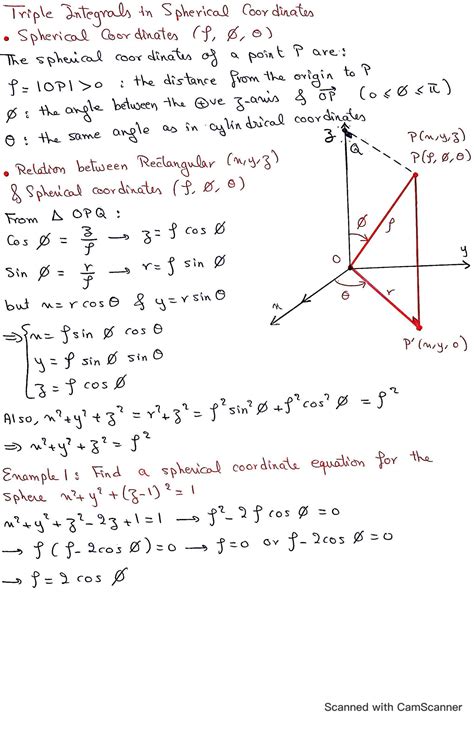 Triple Integrals in Spherical Coordinates
• Spherical Coordinates (ρ, ∅, θ)
The spherical coordinates of a point P are:
ρ = |OP| > 0 : the distance from the origin to P
∅ : the angle between the ⊕ve z-axis & OP (0 ≤ ∅ ≤ π)
θ : the same angle as in cylindrical coordinates
• Relation between Rectangular (x,y,z)
& Spherical coordinates (ρ, ∅, θ)
From △ OPQ :
Cos ∅ = z/ρ → z = ρ cos ∅
Sin ∅ = r/ρ → r = ρ sin ∅
but x = r cos θ & y = r sin θ
⇒ { x = ρ sin ∅ cos θ
y = ρ sin ∅ sin θ
z = ρ cos ∅
z
Q
P(x,y,z)
P(ρ, ∅, θ)
∅
ρ
O
y
x
θ
r
P'(x,y,0)
Also, x² + y² + z² = r² + z² = ρ² sin² ∅ + ρ² cos² ∅ = ρ²
⇒ x² + y² + z² = ρ²
Example 1: Find a spherical coordinate equation for the
sphere x² + y² + (z-1)² = 1
x² + y² + z² - 2z + 1 = 1 → ρ² - 2ρ cos ∅ = 0
→ ρ (ρ - 2 cos ∅) = 0 → ρ = 0 or ρ - 2 cos ∅ = 0
→ ρ = 2 cos ∅
Scanned with CamScanner